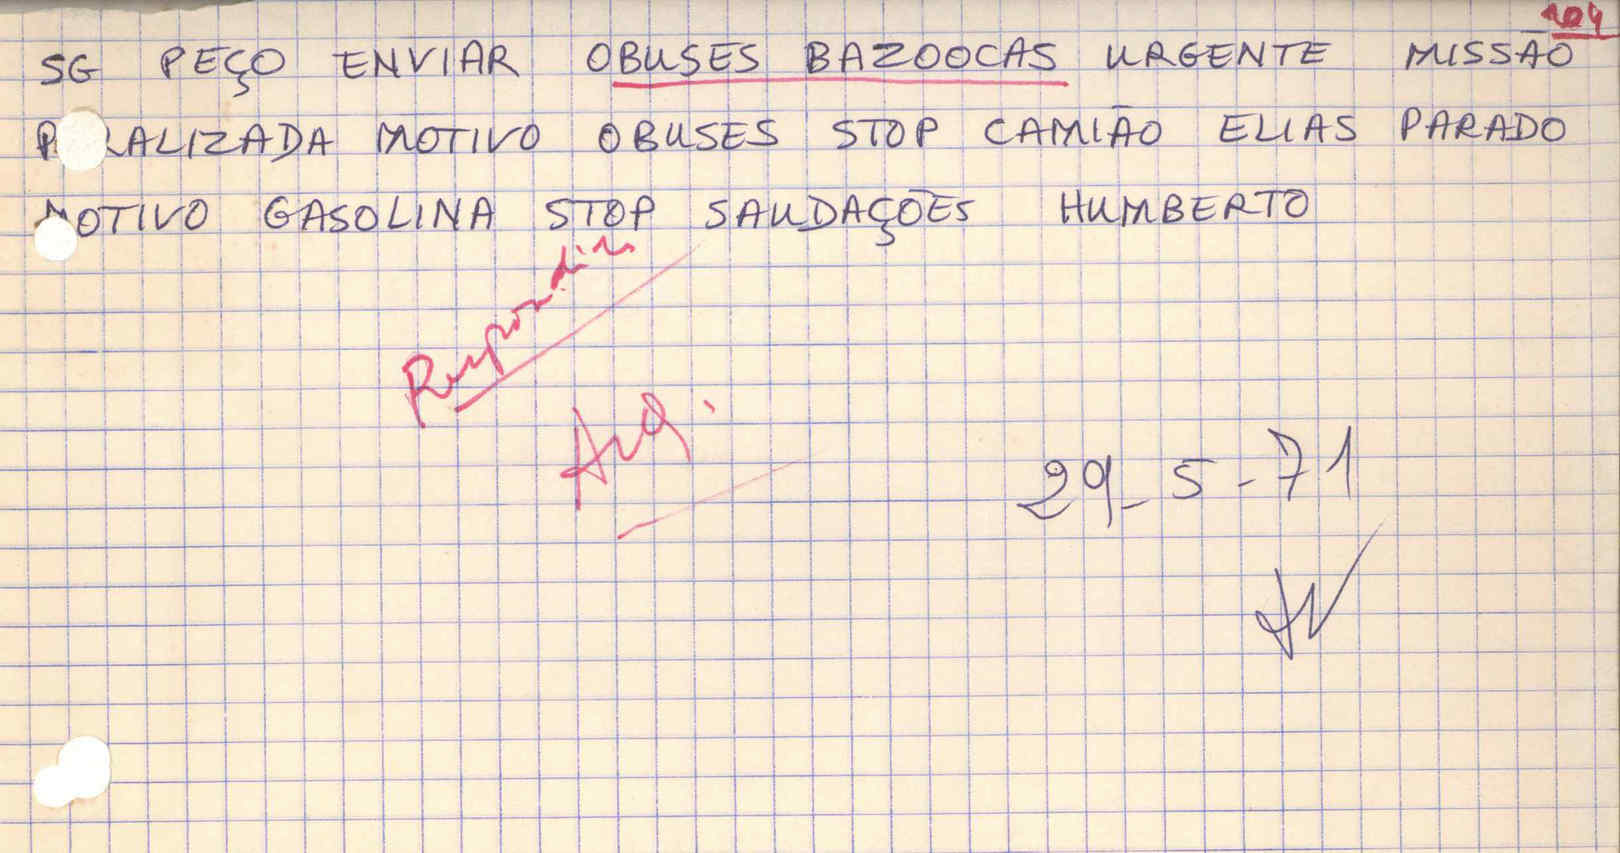 104
SG PEÇO ENVIAR OBUSES BAZOOCAS URGENTE MISSÃO
PARALIZADA MOTIVO OBUSES STOP CAMIÃO ELIAS PARADO
MOTIVO GASOLINA STOP SAUDAÇÕES HUMBERTO
Arq.
29-5-71